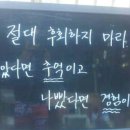 절대 후회하지 미라.
았다면 추억이고
나빴다면 경험이